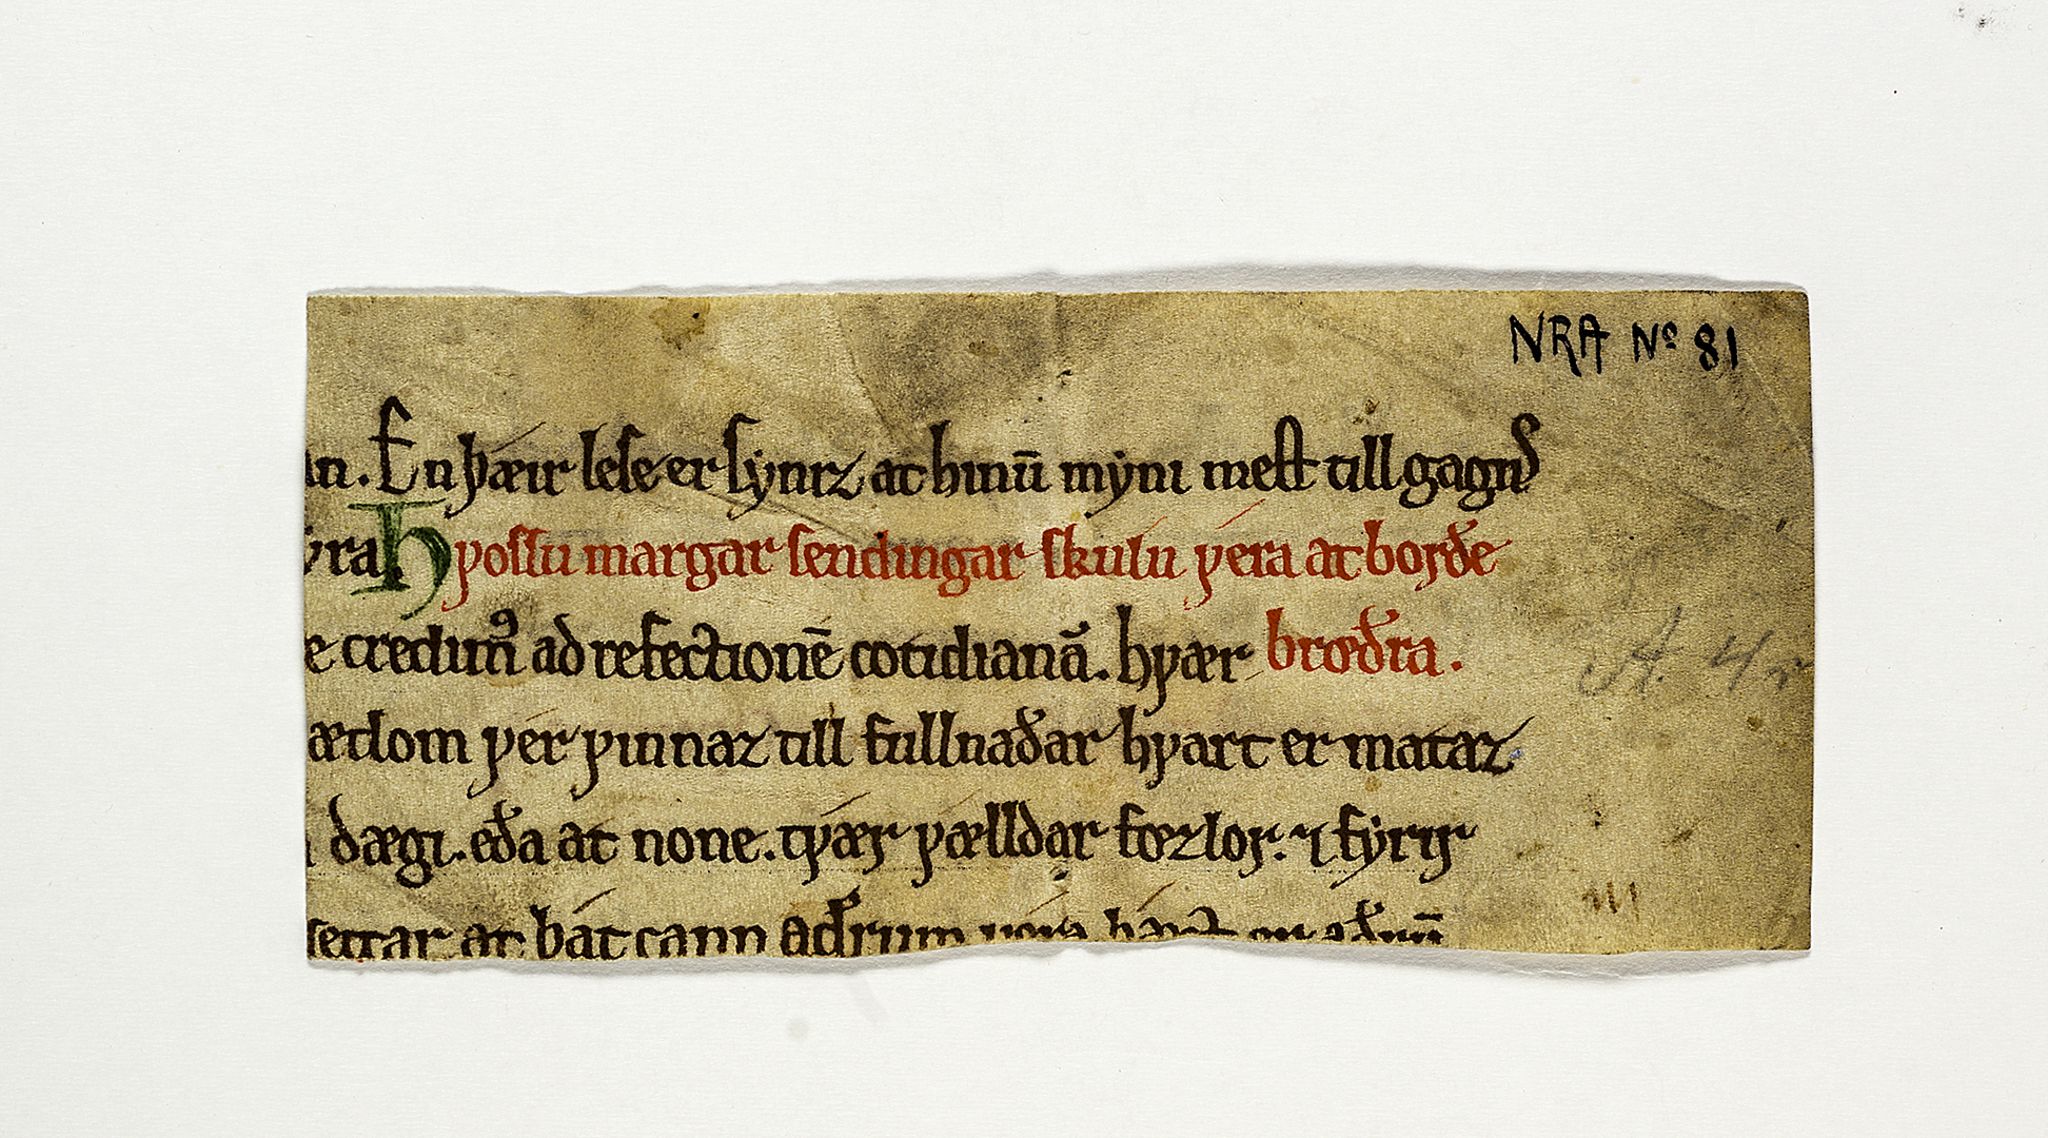 NRA Nº 81
n. En þæir lese er sẏnız at hınū mẏnı mest tıll gagns
ẏra. Hꝩossu margar sendıngar skulu ꝩera at borðe
e credım᷒ ad refectıonē cotıdıanā. hꝩær brœðra.
ætlom ꝩer ꝩınnaz tıll fullnaðar hꝩart er mataz
dægı. eða at none. tꝩær ꝩælldar fœzlor. ⁊ fẏrır
settar at þat cann aðrum
A. 4r